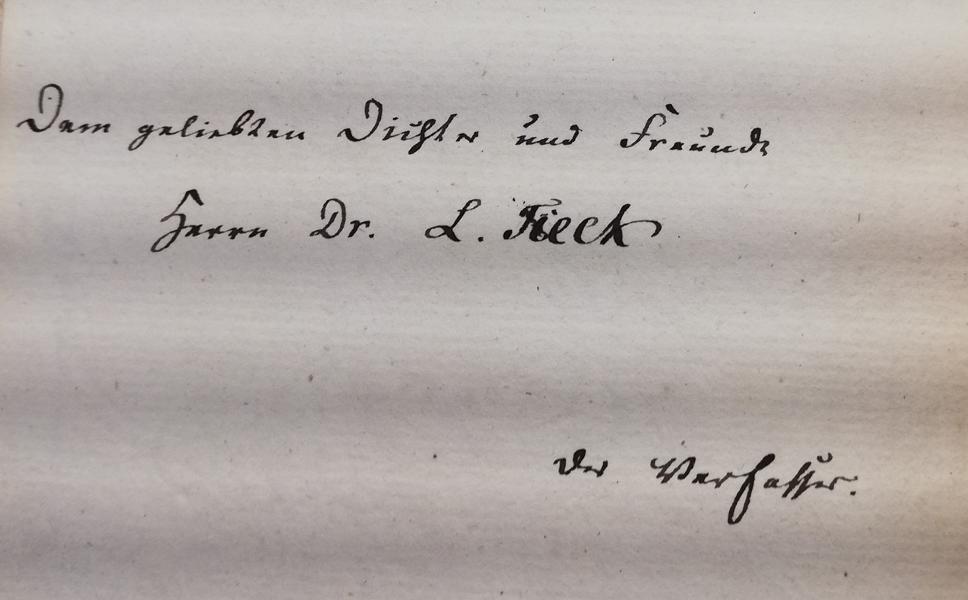 Dem geliebten Dichter und Freunde
Herrn Dr. L. Tieck
der Verfasser.